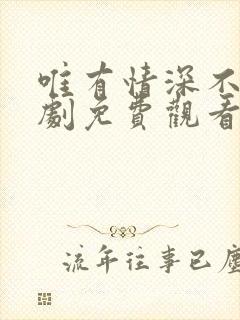 唯有情深不
劇免費觀看
流年往事已塵